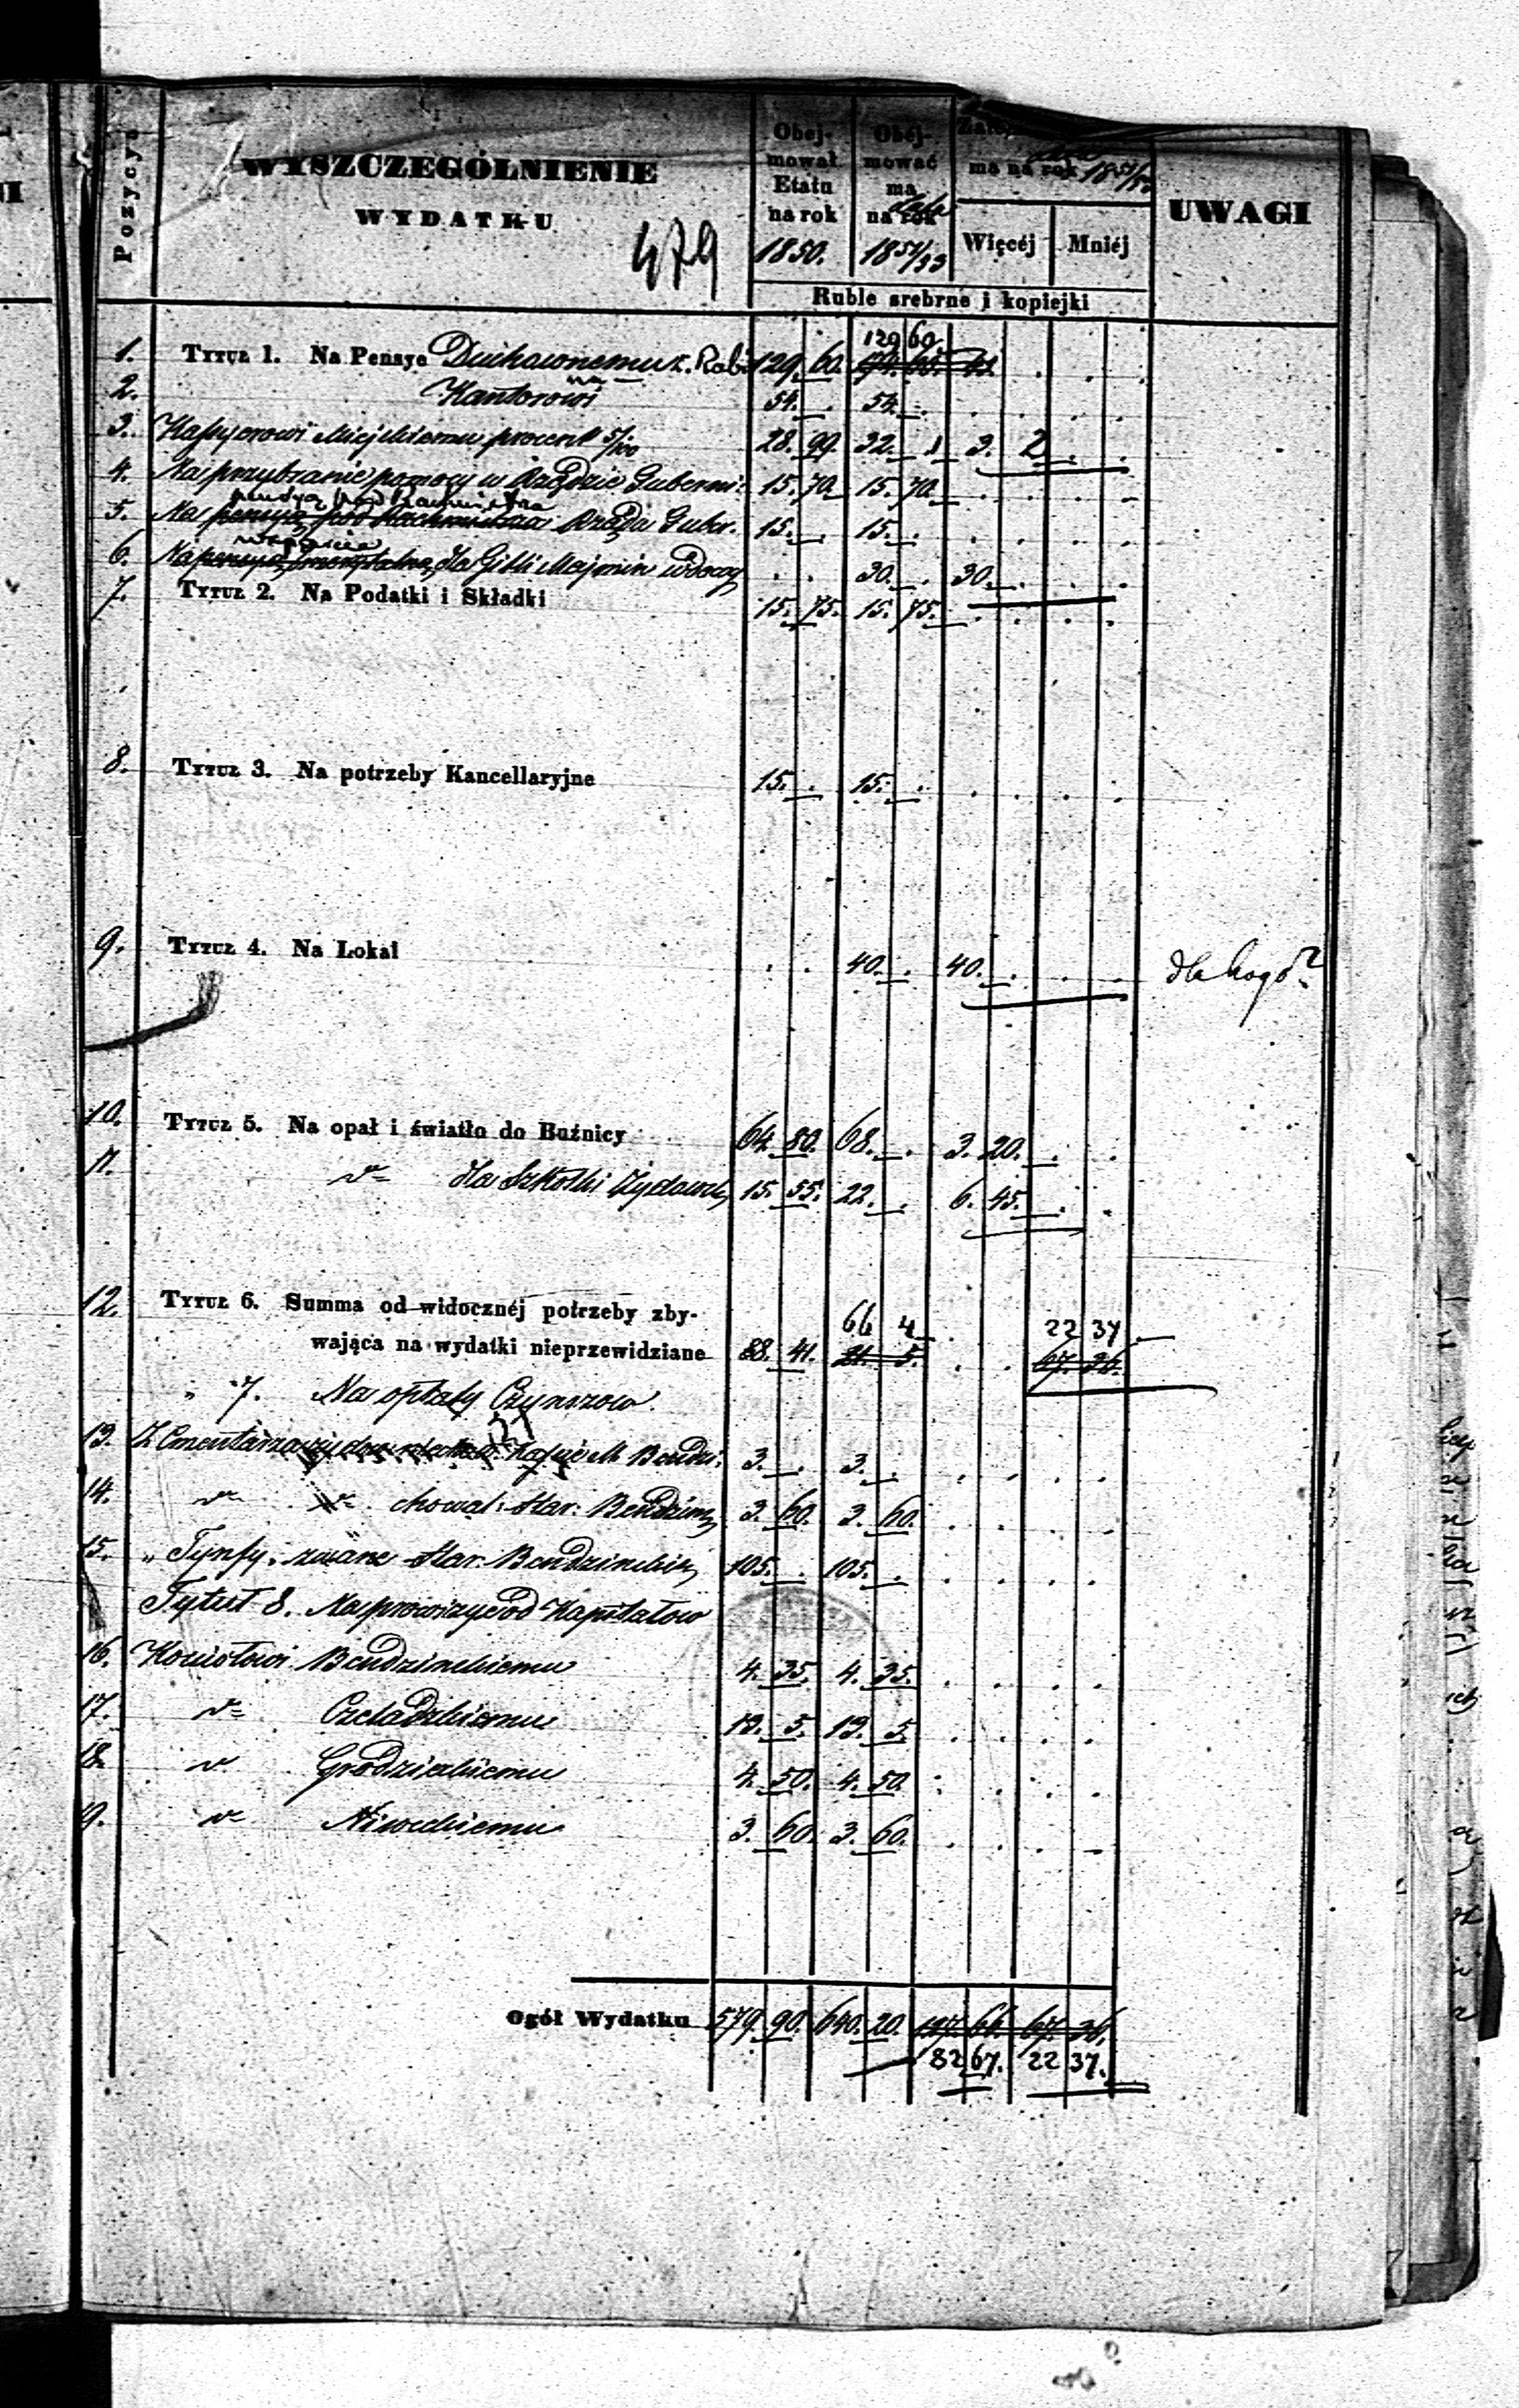 Pozycya
WYSZCZEGÓLNIENIE
WYDATKU
479
Obej-
mował
Etatu
na rok
1850.
Obéj-
mować
ma
na rok
lata
1851/53
ma na rok 1851/53
Więcéj
Mniéj
UWAGI
Ruble srebrne i kopiejki
129 60.
1. Tytuł 1. Na Pensye Duchownemu 129. 60.
2. Kantorowi 54. . 54. .
3. Kassyerowi Miejskiemu procent 5/100 28. 99. 32. 1 3. 2
4. Na przybranie pomocy w Rządzie Guberni: 15. 70. 15. 70.
5. Na Rządu Guber. 15. . 15. .
6. dla Gitli Majmin wdowy . . 30. . 30. .
7. Tytuł 2. Na Podatki i Składki 15. 75. 15. 75.
8. Tytuł 3. Na potrzeby Kancellaryjne 15. . 15. .
9. Tytuł 4. Na Lokal . . 40. . 40. . dla kogo?
10. Tytuł 5. Na opał i światło do Buźnicy 64. 80. 68. . 3. 20.
11. dla Szkółki Żydowsk 15. 55. 22. . 6. 45.
12. Tytuł 6. Summa od widocznéj potrzeby zby-
66 4 22 37
wająca na wydatki nieprzewidziane 88. 41. 21. 5. 67. 36.
„ 7. Na opłaty Czynszow.
13. Z Cmentarza M. Bendzi: 3. . 3. .
14. Star. Bendzins 3. 60. 3. 60.
15. „ Tynfy zwane Star. Bendzinskiey 105. . 105. .
Tytuł 8. Na prowizye od Kapitałow
16. Kościołowi Bendzinskiemu 4. 35. 4. 35.
17. Czeladzkiemu 13. 5. 13. 5.
18. Grodzieckiemu 4. 50. 4. 50.
19. Niweckiemu 3. 60. 3. 60.
Ogół Wydatku 579. 90. 640. 20. 127. 66. 67. 36.
82 67. 22 37.